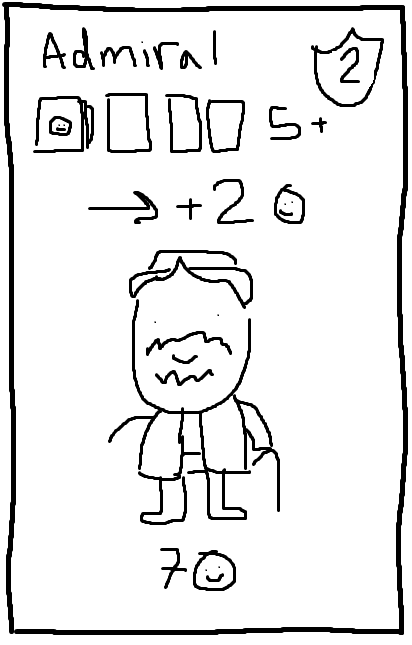 Admiral
2
5+
→ +2
7